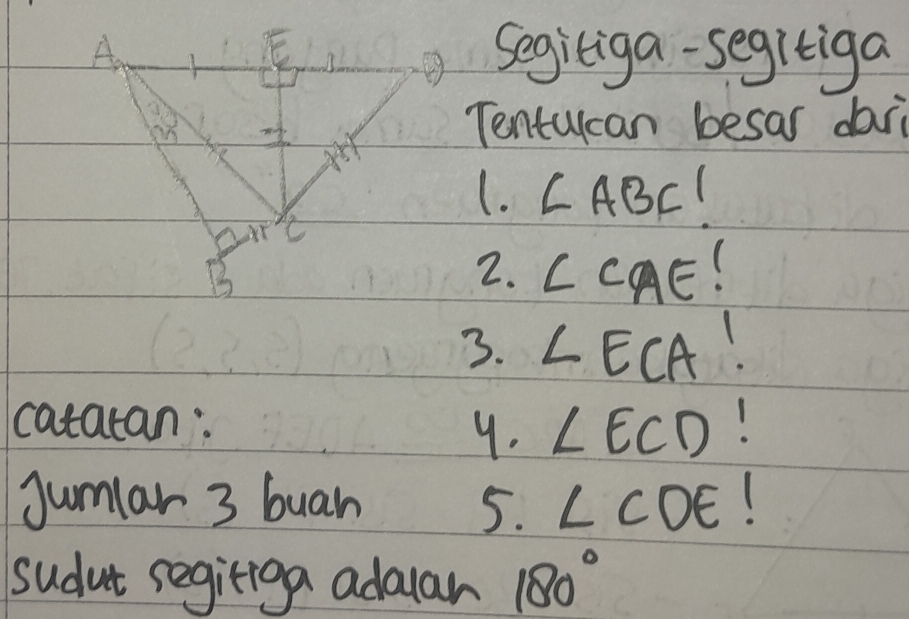 A E D Segitiga-segitiga
30° Tentukan besar dari
1. ∠ ABC!
B C 2. ∠ CAE!
3. ∠ ECA!
catatan: 4. ∠ ECD!
Jumlah 3 buah 5. ∠ CDE!
sudut segitiga adalah 180°